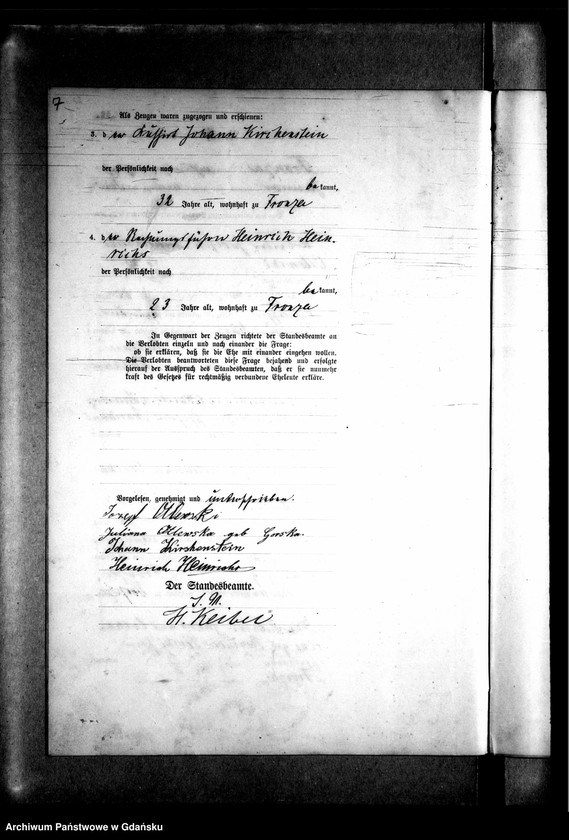 7
Als Zeugen waren zugezogen und erschienen:
3. der Johann Kirchenstein
der Persönlichkeit nach
bekannt,
32 Jahre alt, wohnhaft zu Fronza
4. der Rechnungsführer Heinrich Hein-
richs
der Persönlichkeit nach
bekannt,
23 Jahre alt, wohnhaft zu Fronza
In Gegenwart der Zeugen richtete der Standesbeamte an
die Verlobten einzeln und nach einander die Frage:
ob sie erklären, daß sie die Ehe mit einander eingehen wollen.
Die Verlobten beantworteten diese Frage bejahend und erfolgte
hierauf der Ausspruch des Standesbeamten, daß er sie nunmehr
kraft des Gesetzes für rechtmäßig verbundene Eheleute erkläre.
Vorgelesen, genehmigt und unterschrieben.
Josef Ollewski
Juliana Ollewska geb Gorska
Johann Kirschenstein
Heinrich Heinrichs
Der Standesbeamte.
H. Keiber
Archiwum Państwowe w Gdańsku